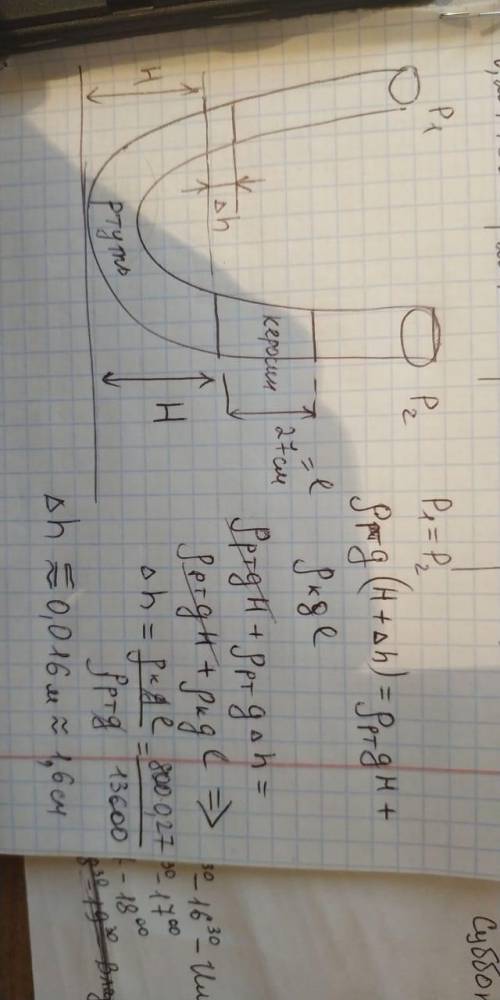 P₁
P₂
H
Δh
ртуть
керосин
27см
= l
H
P₁ = P₂
ρрт g (H + Δh) = ρрт g H +
ρк g l
ρрт g H + ρрт g Δh =
ρрт g H + ρк g l ⇒
Δh = ρк g l / ρрт g = 800·0,27 / 13600
Δh ≈ 0,016 м ≈ 1,6 см
30 - 16³⁰ -
30 - 17⁰⁰
- 18⁰⁰